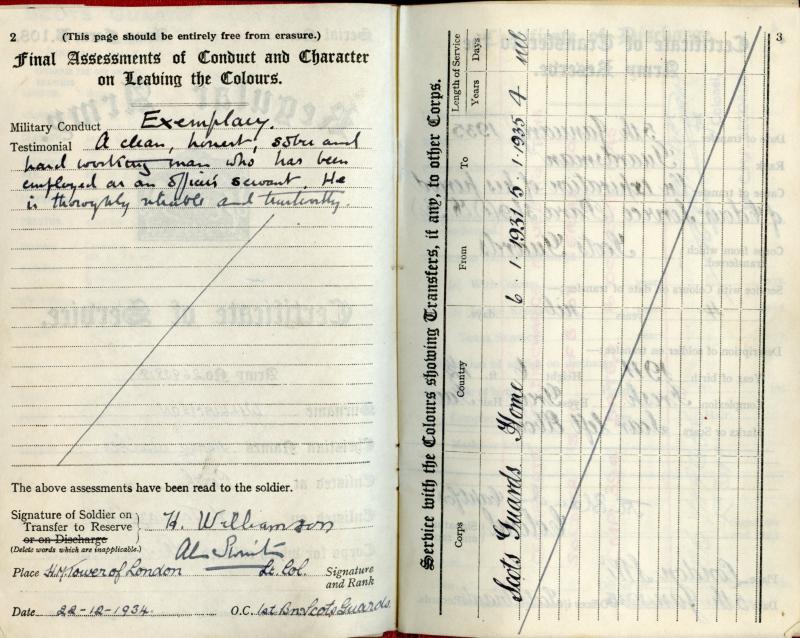 2
(This page should be entirely free from erasure.)
Final Assessments of Conduct and Character
on Leaving the Colours.
Military Conduct Exemplary.
Testimonial A clean, honest, sober and
hard working man who has been
employed as an officer's servant. He
is thoroughly reliable and trustworthy.
The above assessments have been read to the soldier.
Signature of Soldier on
Transfer to Reserve
or on Discharge
(Delete words which are inapplicable.)
H. Williamson
Smith
Place H.M. Tower of London Lt. Col. Signature
and Rank
Date 22-12-1934. O.C. 1st Bn Scots Guards.
3
Service with the Colours showing Transfers, if any, to other Corps.
Corps Country From To Length of Service
Years Days
Scots Guards Home 6.1.1931 5.1.1935 4 nil